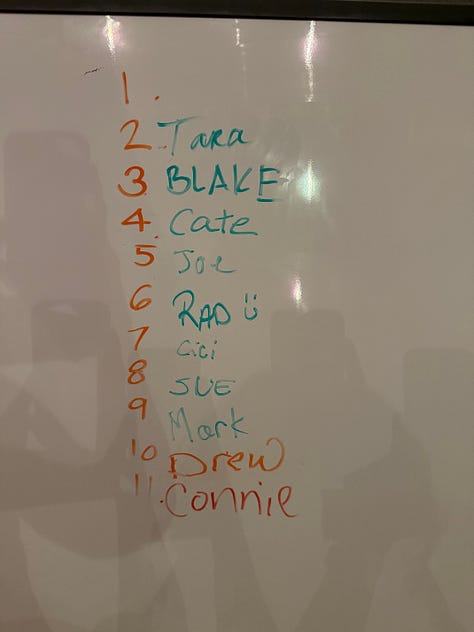 1.
2. Tara
3 BLAKE
4. Cate
5 Joe
6 RAD ü
7 Cici
8 SUE
9 Mark
10 Drew
11. Connie